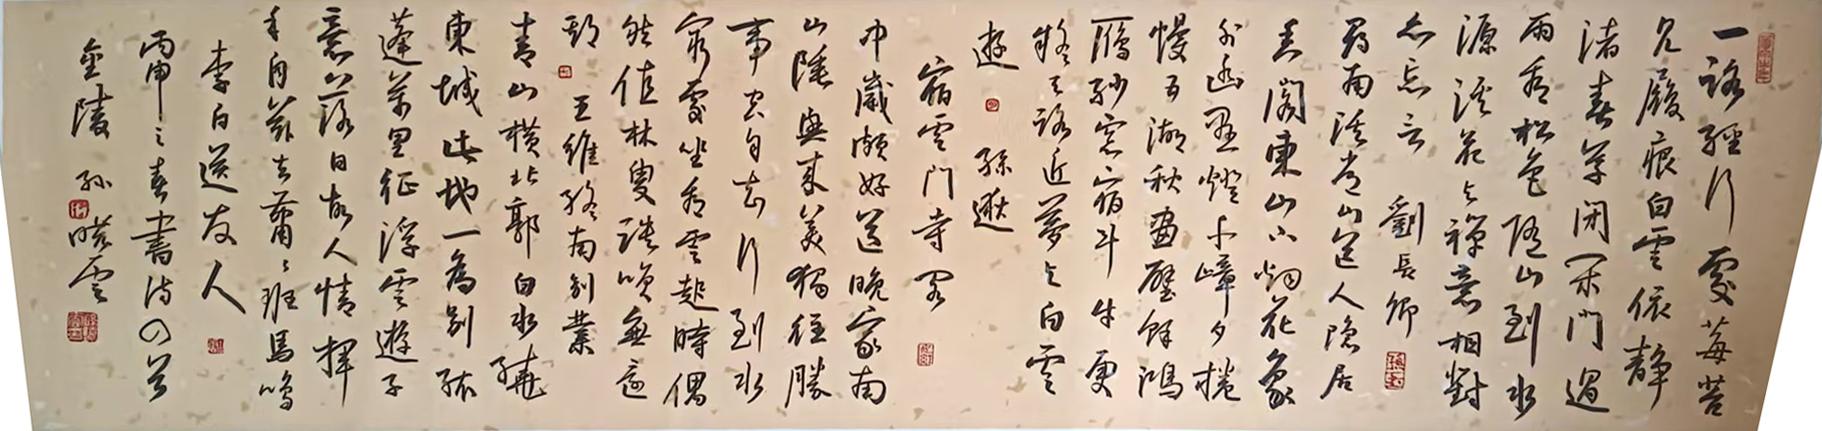 一路經行處莓苔
見履痕白雲依靜
渚春草閉閑門過
雨看松色隨山到水
源溪花與禪意相對
亦忘言 劉長卿
尋南溪常山道人隱居
香閣東山下烟花象
外幽懸燈千嶂夕捲
幔五湖秋畫壁餘鴻
雁紗窗宿斗牛更
疑天路近夢與白雲
遊 孫逖
宿雲門寺閣
中歲頗好道晚家南
山陲興來美獨往勝
事空自去行到水
窮處坐看雲起時偶
然值林叟談笑無還
期 王維終南別業
青山橫北郭白水繞
東城此地一為別孤
蓬萬里征浮雲遊子
意落日故人情揮
手自茲去蕭〻班馬鳴
李白送友人
丙申之春書詩四首
金陵 孫曉雲